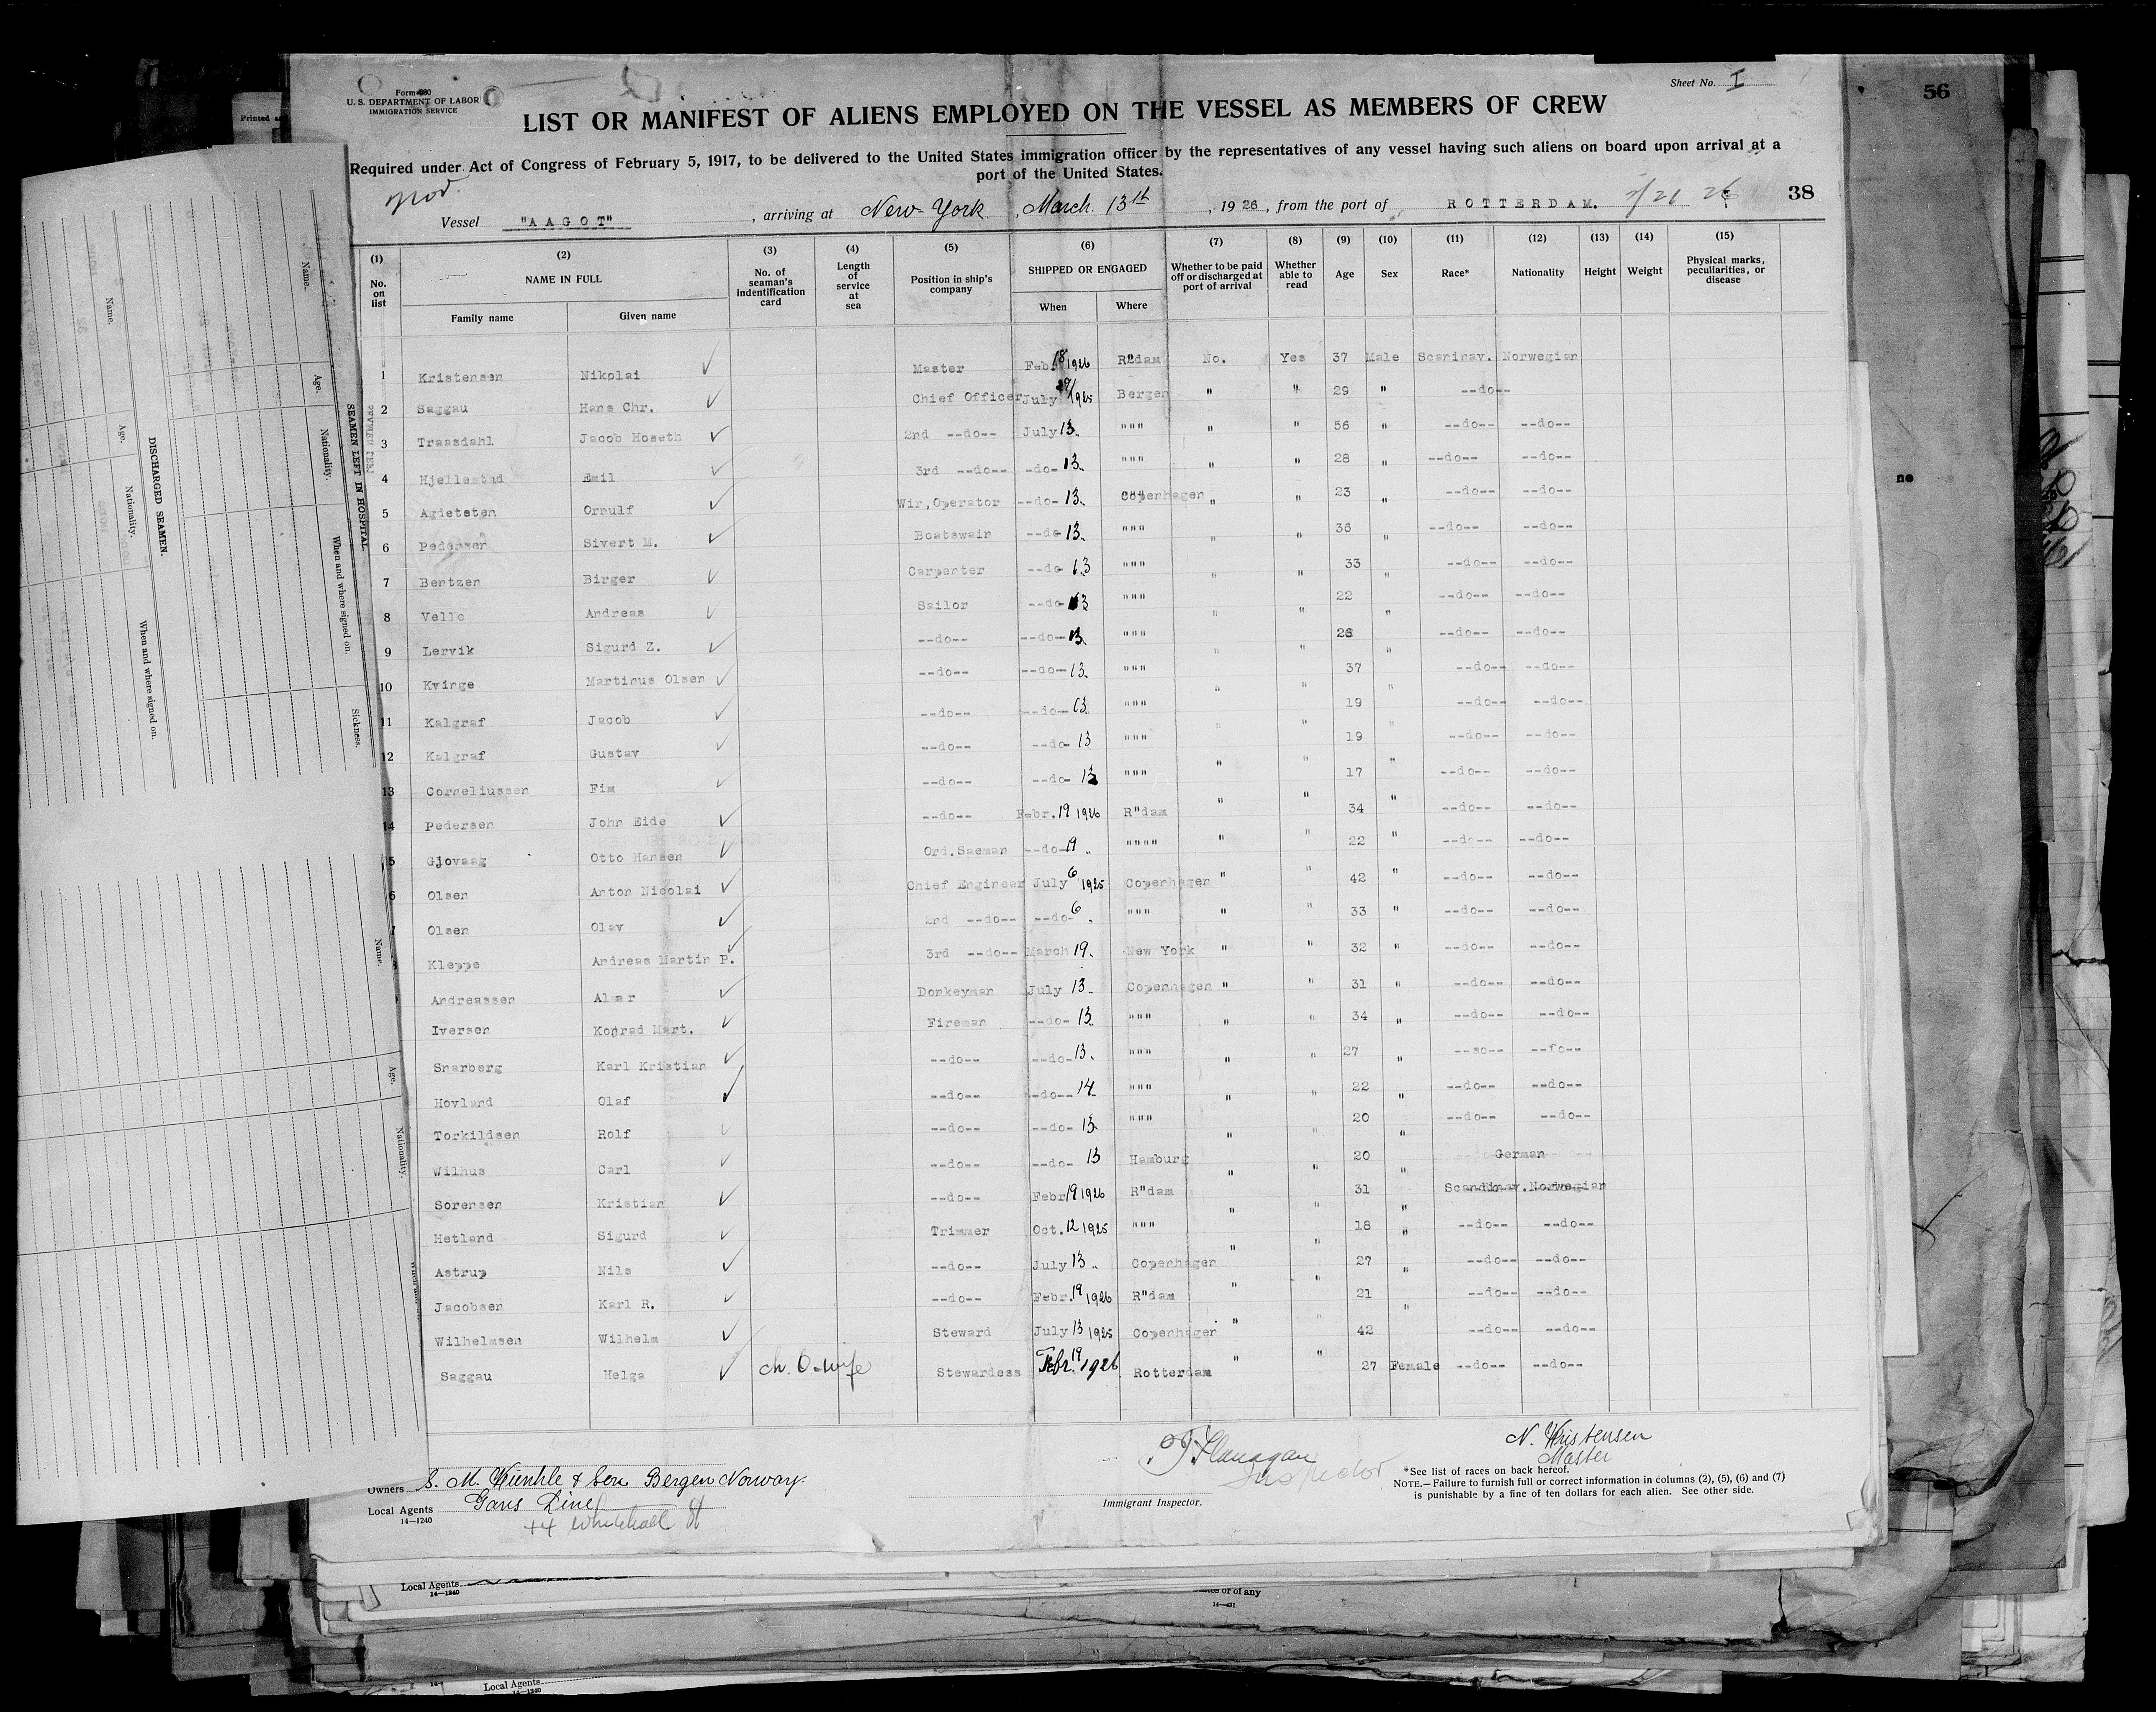 56
Sheet No. I
Form 680
U. S. DEPARTMENT OF LABOR
IMMIGRATION SERVICE
Printed
LIST OR MANIFEST OF ALIENS EMPLOYED ON THE VESSEL AS MEMBERS OF CREW
Required under Act of Congress of February 5, 1917, to be delivered to the United States immigration officer by the representatives of any vessel having such aliens on board upon arrival at a
port of the United States.
nor.
Vessel "AAGOT", arriving at New-York, March. 13th, 1926, from the port of ROTTERDAM. 38
(1) (2) (3) (4) (5) (6) (7) (8) (9) (10) (11) (12) (13) (14) (15)
No. on list NAME IN FULL No. of seaman's indentification card Length of service at sea Position in ship's company SHIPPED OR ENGAGED Whether to be paid off or discharged at port of arrival Whether able to read Age Sex Race* Nationality Height Weight Physical marks, peculiarities, or disease
Family name Given name When Where
1 Kristensen Nikolai Master Feb. 18 1926 R"dam No. Yes 37 Male Scaninav. Norwegian
2 Saggau Hans Chr. Chief Officer July 29/1925 Bergen " " 29 " --do--
3 Traasdahl Jacob Hoseth 2nd --do-- July 13. """ " " 56 " --do-- --do--
4 Hjellestad Emil 3rd --do-- -do- 13. """ " " 28 " --do-- --do--
5 Agdetsten Ornulf Wir,Operator --do- 13. Copenhagen " " 23 " --do-- --do--
6 Pedersen Sivert M. Boatswain --do- 13. """ " " 36 " --do-- --do--
7 Bentzen Birger Carpenter --do- 13 """ " " 33 " --do-- --do--
8 Velle Andreas Sailor --do- 13 """ " " 22 " --do-- --do--
9 Lervik Sigurd Z. --do-- --do- 13. """ " " 26 " --do-- --do--
10 Kvinge Martinus Olsen --do-- --do- 13. """ " " 37 " --do-- --do--
11 Kalgraf Jacob --do-- --do- 13. """ " " 19 " --do-- --do--
12 Kalgraf Gustav --do-- --do- 13 """ " " 19 " --do-- --do--
13 Corneliussen Fim --do-- --do- 13 """ " " 17 " --do-- --do--
14 Pedersen John Eide --do-- Febr. 19 1926 R"dam " " 34 " --do-- --do--
5 Gjovaag Otto Hansen Ord.Saeman --do- 19 " """" " " 22 " --do-- --do--
6 Olsen Anton Nicolai Chief Engineer July 6 1925 Copenhagen " " 42 " --do-- --do--
7 Olsen Olav 2nd --do-- --do- 6 " """ " " 33 " --do-- --do--
8 Kleppe Andreas Martin P. 3rd --do-- March 19. New York " " 32 " --do-- --do--
Andreassen Almar Donkeyman July 13 Copenhagen " " 31 " --do-- --do--
Iversen Konrad Mart. Fireman --do- 13. """ " " 34 " --do-- --do--
Snarberg Karl Kristian --do-- --do- 13. """ " " 27 " --so-- --fo--
Hovland Olaf --do-- --do-- 14 """ " " 22 " --do-- --do--
Torkildsen Rolf --do-- --do- 13. """ " " 20 " --do-- --do--
Wilhus Carl --do-- --do- 13 Hamburg " " 20 " German
Sorensen Kristian --do-- Febr 19 1926 R"dam " " 31 " Scandinav. Norwegian
Hetland Sigurd Trimmer Oct. 12 1925 """ " " 18 " --do-- --do--
Astrup Nils --do-- July 13 " Copenhagen " " 27 " --do-- --do--
Jacobsen Karl R. --do-- Febr. 19 1926 R"dam " " 21 " --do-- --do--
Wilhelmsen Wilhelm Steward July 13 1925 Copenhagen " " 42 --do-- --do--
Saggau Helga ch. O-wife Stewardess Febr. 19 1926 Rotterdam " " 27 Female --do-- --do--
N. Kristensen
Master
T Flanagan
Inspector
Immigrant Inspector.
*See list of races on back hereof.
NOTE.—Failure to furnish full or correct information in columns (2), (5), (6) and (7)
is punishable by a fine of ten dollars for each alien. See other side.
Owners S. M. Kuenhle & Son Bergen Norway.
Local Agents Gans Line
14—1240
44 Whitehall St
Name.
Age.
Nationality.
When and where signed on.
Sickness.
SEAMEN LEFT IN HOSPITAL
DISCHARGED SEAMEN.
Name.
Age.
Nationality.
When and where signed on.
Name.
Age.
Nationality.
ne
Local Agents
14—1240
or of any
14—431
Local Agents
14—1240